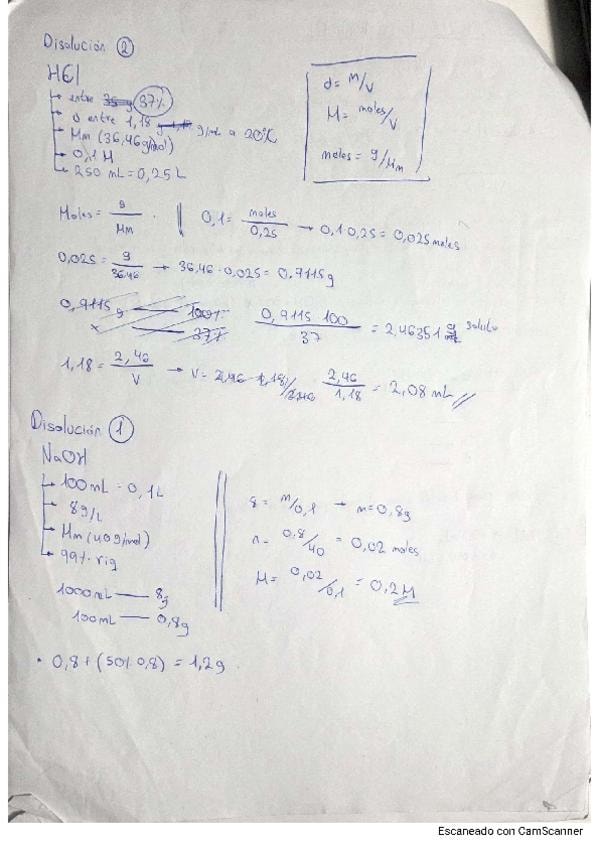 Disolución 2
HCl
entre 37%
entre 1,18 g/mL a 20ºC
Mm (36,46g/mol)
0,1 M
250 mL = 0,25 L
d = m/V
M = moles/V
moles = g/Mm
Moles = g/Mm . || 0,1 = moles/0,25 → 0,1·0,25 = 0,025 moles
0,025 = g/36,46 → 36,46 · 0,025 = 0,9115 g
0,9115 g — 100%
x — 37%
0,9115·100/37 = 2,46351 g soluto
1,18 = 2,46/V → V = 2,46/1,18 = 2,08 mL
Disolución 1
NaOH
100mL = 0,1L
8g/L
Mm (40g/mol)
99% riq
1000mL — 8g
100mL — 0,8g
8 = m/0,1 → m = 0,8g
n = 0,8/40 = 0,02 moles
M = 0,02/0,1 = 0,2M
• 0,8 + (50% 0,8) = 1,2g
Escaneado con CamScanner